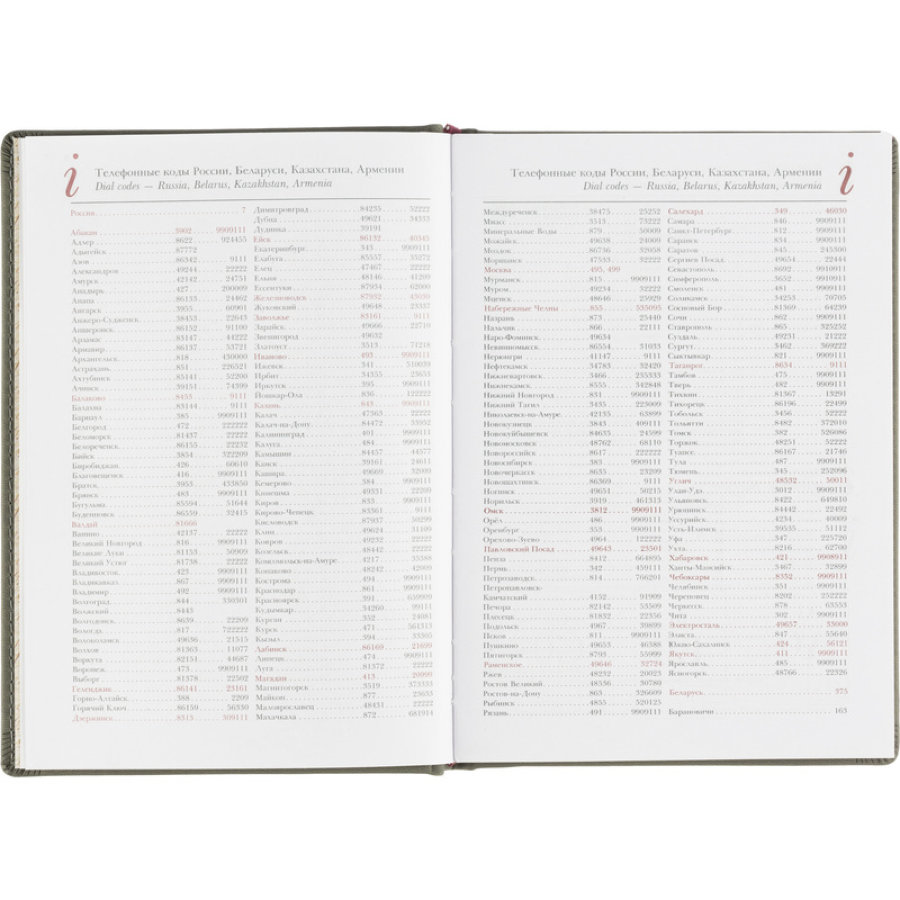 i
Телефонные коды России, Беларуси, Казахстана, Армении
Dial codes — Russia, Belarus, Kazakhstan, Armenia
Россия 7
Абакан 3902 9909111
Адлер 8622 924455
Адыгейск 87772
Азов 86342 9111
Александров 49244 22222
Амурск 42142 24751
Анадырь 427 200009
Анапа 86133 24462
Ангарск 3955 60901
Анжеро-Судженск 38453 22643
Апшеронск 86152 91100
Арзамас 83147 44222
Армавир 86137 53721
Архангельск 818 430000
Астрахань 851 226521
Ахтубинск 85141 52200
Ачинск 39151 74399
Балаково 8453 9111
Балахна 83144 9111
Барнаул 385 9909111
Белгород 472 222222
Беломорск 81437 22222
Белореченск 86155 22232
Бийск 3854 322209
Биробиджан 426 60610
Благовещенск 416 9909111
Братск 3953 453850
Брянск 483 9909111
Бугульма 85594 51644
Буденновск 86559 32415
Валдай 81666
Ванино 42137 22222
Великий Новгород 816 9909111
Великие Луки 81153 50909
Великий Устюг 81738 22222
Владивосток 423 9909111
Владикавказ 867 9909111
Владимир 492 9909111
Волгоград 844 330301
Волжский 8443
Волгодонск 8639 22209
Вологда 817 722222
Волоколамск 49636 21515
Волхов 81363 11077
Воркута 82151 44687
Воронеж 473 9909111
Выборг 81378 22502
Геленджик 86141 23161
Горно-Алтайск 388 2209
Горячий Ключ 86159 36330
Дзержинск 8313 309111
Димитровград 84235 52222
Дубна 49621 54333
Дудинка 39191
Ейск 86132 40345
Екатеринбург 343 9909111
Елабуга 85557 33272
Елец 47467 22222
Ельня 48146 41209
Ессентуки 87934 62000
Железноводск 87932 43030
Жуковский 49648 23337
Заволжье 83161 9111
Зарайск 49666 22710
Звенигород 49632
Златоуст 3513 71218
Иваново 493 9909111
Ижевск 341 510039
Ирбит 34355 23653
Иркутск 395 9909111
Йошкар-Ола 836 122222
Казань 843 9909111
Калач 47363 22222
Калач-на-Дону 84472 33952
Калининград 401 9909111
Калуга 484 9909111
Камышин 84457 44577
Канск 39161 24611
Кашира 49669 32000
Кемерово 384 9909111
Кинешма 49331 22209
Киров 833 9909111
Кирово-Чепецк 83361 9111
Кисловодск 87937 50299
Клин 49624 31109
Ковров 49232 22222
Козельск 48442 22222
Комсомольск-на-Амуре 4217 33388
Конаково 48242 42009
Кострома 494 9909111
Краснодар 861 9909111
Красноярск 391 659909
Кудымкар 34260 99111
Курган 352 24081
Курск 471 561313
Кызыл 394 33305
Лабинск 86169 21699
Липецк 474 9909111
Луга 81372 22222
Магадан 413 20999
Магнитогорск 3519 373333
Майкоп 877 23633
Малоярославец 48431 22222
Махачкала 872 681914
Телефонные коды России, Беларуси, Казахстана, Армении
Dial codes — Russia, Belarus, Kazakhstan, Armenia
i
Междуреченск 38475 25252
Миасс 3513 73222
Минеральные Воды 879 50009
Можайск 49638 24009
Моздок 86736 32058
Моршанск 47533 32222
Москва 495, 499
Мурманск 815 9909111
Муром 49234 32222
Мценск 48646 25929
Набережные Челны 855 535095
Назрань 873 25440
Нальчик 866 22111
Наро-Фоминск 49634
Невинномысск 86554 31033
Нерюнгри 41147 9111
Нефтекамск 34783 32420
Нижневартовск 3466 235333
Нижнекамск 8555 342848
Нижний Новгород 831 9909111
Нижний Тагил 3435 223009
Николаевск-на-Амуре 42135 63899
Новокузнецк 3843 409111
Новокуйбышевск 84635 24599
Новомосковск 48762 68110
Новороссийск 8617 222222
Новосибирск 383 9909111
Новочеркасск 8635 23209
Новошахтинск 86369 9111
Ногинск 49651 50215
Норильск 3919 461313
Омск 3812 9909111
Орёл 486 9909111
Оренбург 353 9909111
Орехово-Зуево 4964 122222
Павловский Посад 49643 23501
Пенза 8412 664895
Пермь 342 459111
Петрозаводск 814 766201
Петропавловск-
Камчатский 4152 91909
Печора 82142 53509
Плесецк 81832 22356
Подольск 4967 39899
Псков 811 9909111
Пушкино 49653 46388
Пятигорск 8793 55999
Раменское 49646 32724
Ржев 48232 20023
Ростов Великий 48336 30780
Ростов-на-Дону 863 326609
Рыбинск 4855 520125
Рязань 491 9909111
Салехард 349 46030
Самара 846 9909111
Санкт-Петербург 812 9909111
Саранск 834 9909111
Саратов 845 245300
Сергиев Посад 49654 22444
Севастополь 8692 9910011
Симферополь 3652 9910911
Смоленск 481 9909111
Соликамск 34253 76705
Сосновый Бор 81369 64239
Сочи 862 9909111
Ставрополь 865 325252
Суздаль 49231 21222
Сургут 3462 369222
Сыктывкар 821 9909111
Таганрог 8634 9111
Тамбов 475 9909111
Тверь 482 9909111
Тихвин 81367 13291
Тихорецк 86196 22499
Тобольск 3456 52222
Тольятти 8482 372010
Томск 382 526086
Торжок 48251 52222
Туапсе 86167 21746
Тула 487 9909111
Тюмень 345 252096
Углич 48532 50011
Улан-Удэ 3012 9909111
Ульяновск 8422 649810
Урюпинск 84442 22492
Уссурийск 4234 40009
Усть-Илимск 39535 51112
Уфа 347 225726
Ухта 8216 62700
Хабаровск 421 9908911
Ханты-Мансийск 3467 32899
Чебоксары 8352 9909111
Челябинск 351 9909111
Череповец 8202 252222
Черкесск 878 63553
Чита 302 9909111
Электросталь 49657 33000
Элиста 847 55640
Южно-Сахалинск 424 56121
Якутск 411 9909111
Ярославль 485 9909111
Ясногорск 48766 22326
Беларусь 375
Барановичи 163